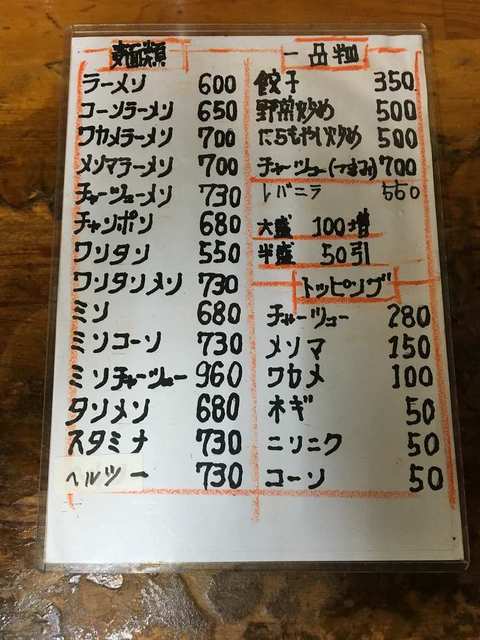 麺類
ラーメン 600
コーンラーメン 650
ワカメラーメン 700
メンマラーメン 700
チャーシューメン 730
チャンポン 680
ワンタン 550
ワンタンメン 730
ミソ 680
ミソコーン 730
ミソチャーシュー 960
タンメン 680
スタミナ 730
ヘルシー 730
一品料理
餃子 350
野菜炒め 500
にらもやし炒め 500
チャーシュー(つまみ) 700
レバニラ 550
大盛 100増
半盛 50引
トッピング
チャーシュー 280
メンマ 150
ワカメ 100
ネギ 50
ニンニク 50
コーン 50